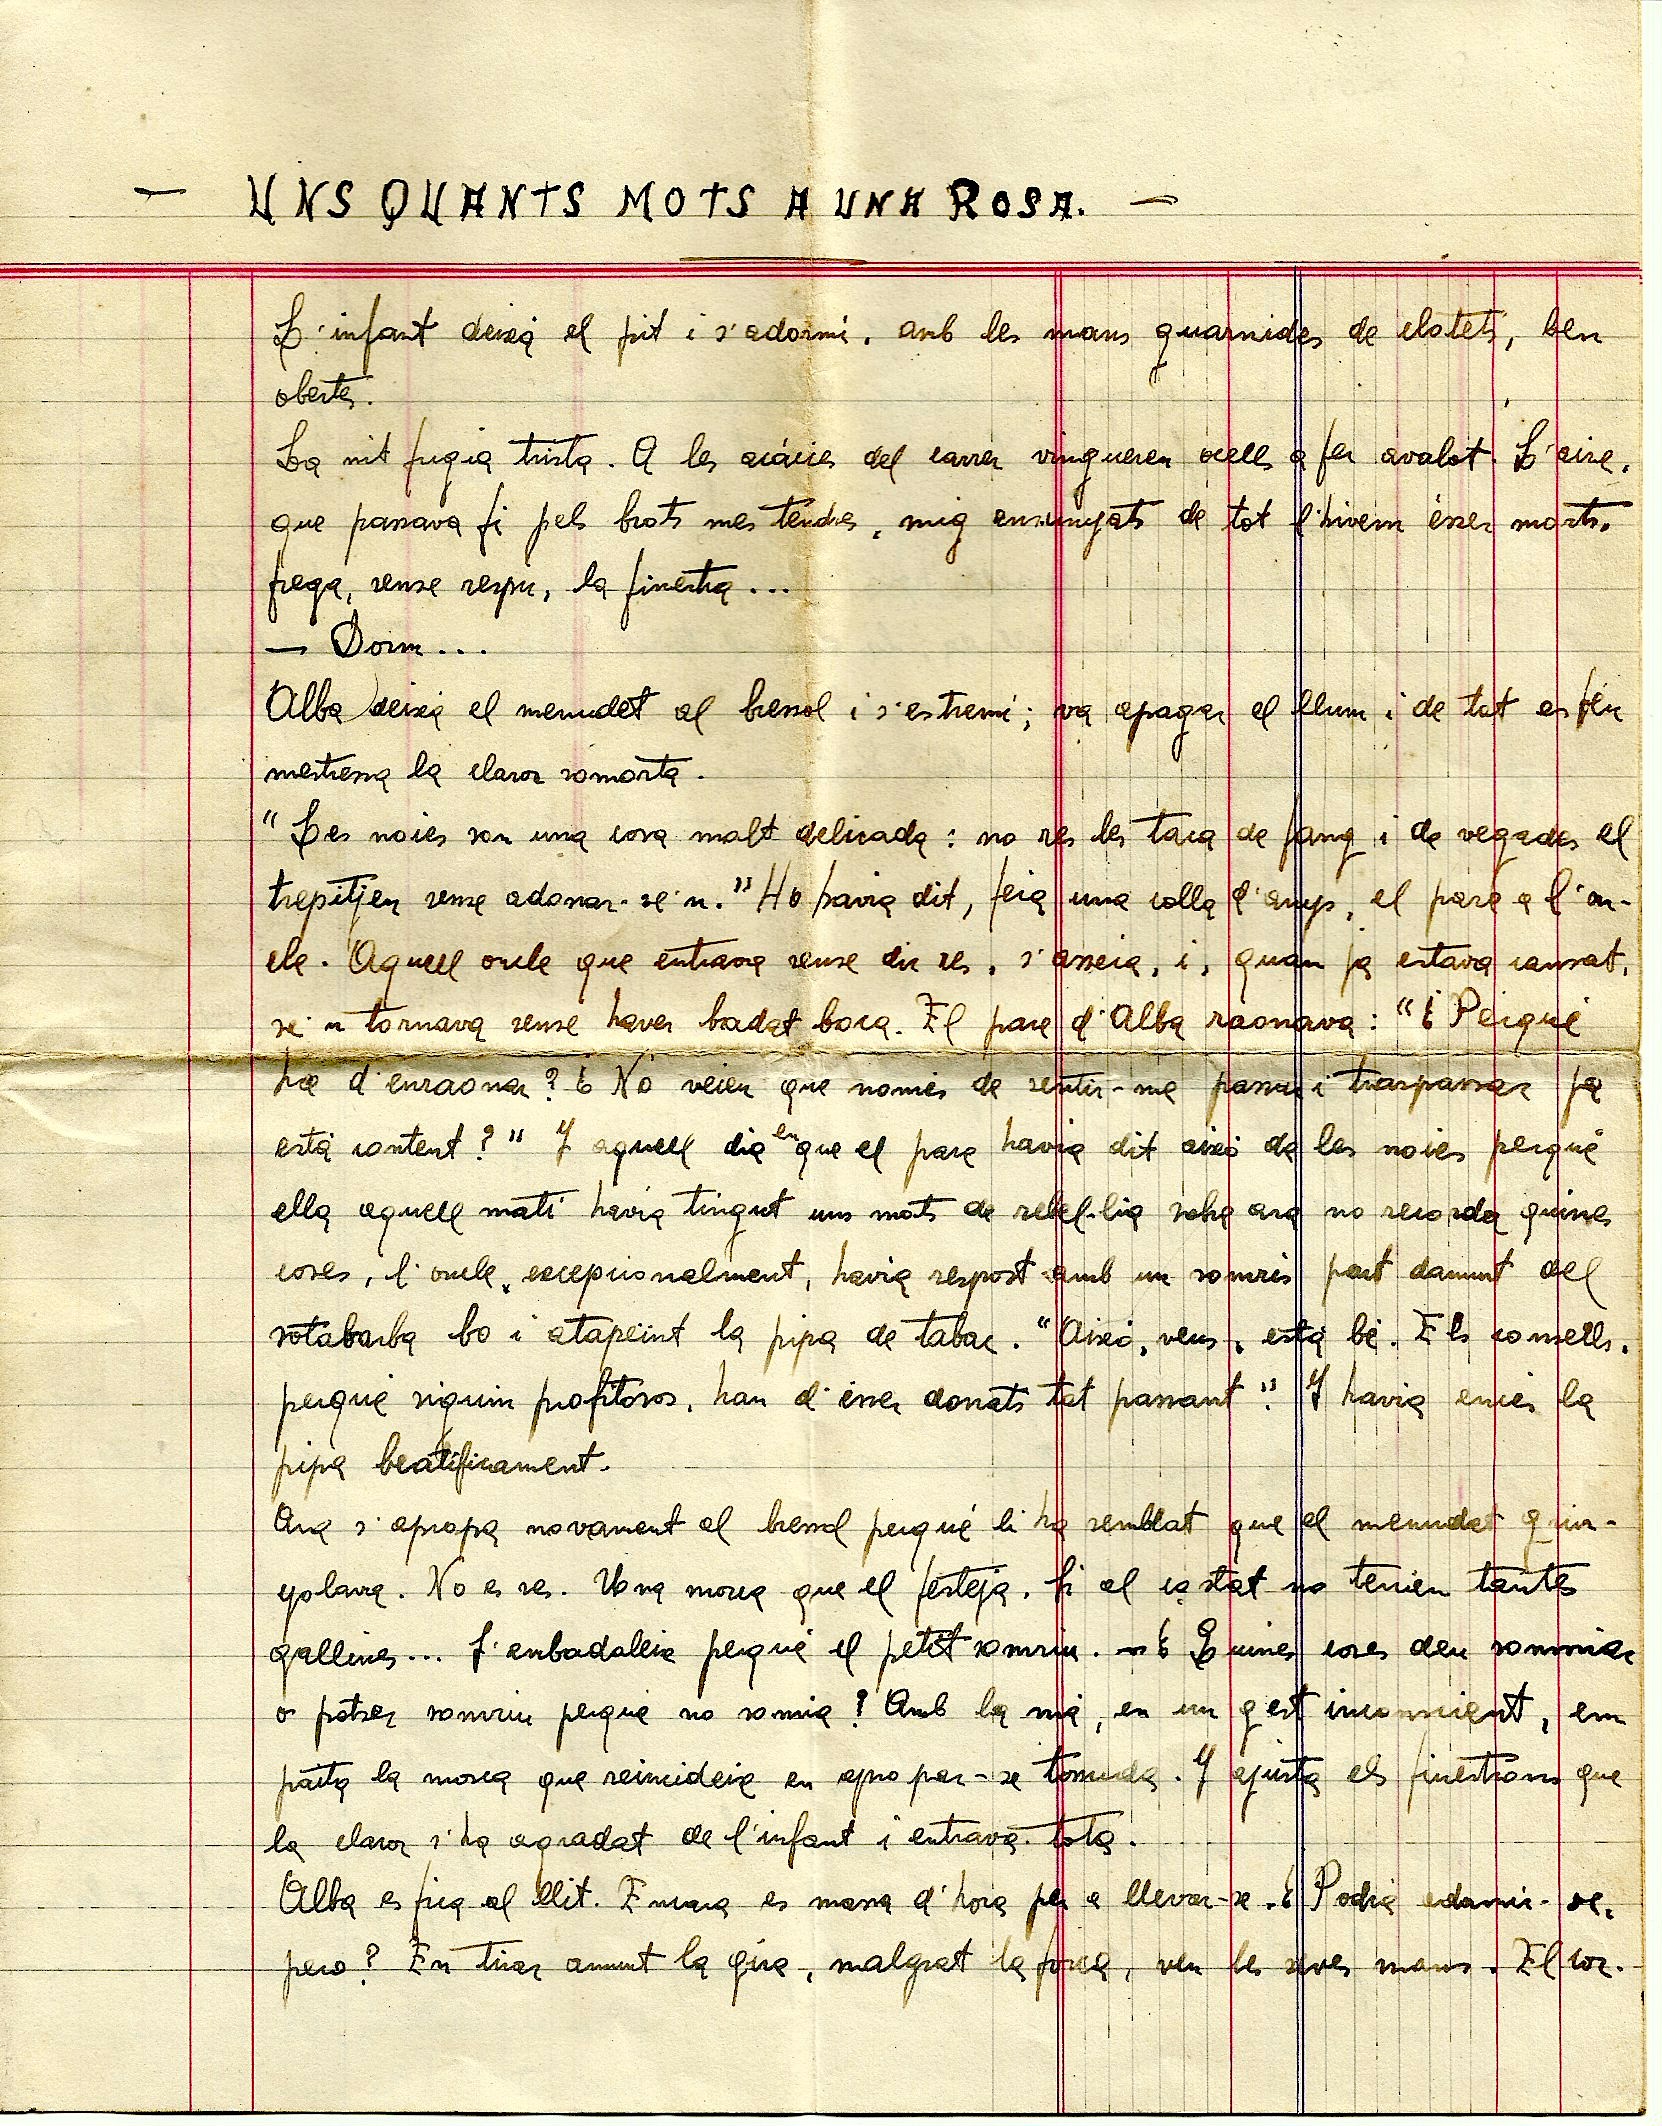 — UNS QUANTS MOTS A UNA ROSA. —
L'infant deixà el pit i s'adormí, amb les mans guarnides de clotets, ben
obertes.
La nit fugia trista. A les acàcies del carrer vingueren ocells a fer avalot. L'aire,
que passava fi pels brots mes tendres, mig enzunyats de tot l'hivern ésser morts,
frega, sense respir, la finestra...
— Dorm...
Alba deixà el menudet al bressol i s'estremí; va apagar el llum i de tot es féu
mestressa la claror somorta.
"Les noies son una cosa molt delicada: no res les taca de fang i de vegades el
trepitjen sense adonar-se'n." Ho havia dit, feia una colla d'anys, el pare a l'on-
cle. Aquell oncle que entrava sense dir res, s'asseia, i, quan ja estava cansat,
se'n tornava sense haver badat boca. El pare d'Alba raonava: "¿Perquè
ha d'enraonar? ¿No veieu que només de sentir-me passar i traspassar ja
està content?" I aquell dia en que el pare havia dit això de les noies perquè
ella aquell matí havia tingut uns mots de rebel·lia sobre ara no recorda quines
coses, l'oncle, excepcionalment, havia respost amb un somris part damunt del
sotabarba bo i atapeint la pipa de tabac. "Això, veus, està bé. Els consells,
perquè siguin profitosos, han d'ésser donats tot passant". I havia encés la
pipa beatificament.
Ara s'apropa novament al bressol perquè li ha semblat que el menudet grin-
yolava. No es res. Una mosca que el festeja. Si al costat no tenien tantes
gallines... S'embadaleix perquè el petit somriu. — ¿Quines coses deu somniar
o potser somriu perquè no somia? Amb la mà, en un gest inconscient, em
paita la mosca que reincideix en apropar-se tossuda. I ajusta els finestrons que
la claror s'ha agradat de l'infant i entrava tota.
Alba es fica al llit. Encara es massa d'hora per a llevar-se. ¿Podrà adormir-se,
pero? En tirar amunt la gira, malgrat la força, veu les seves mans. El cor.